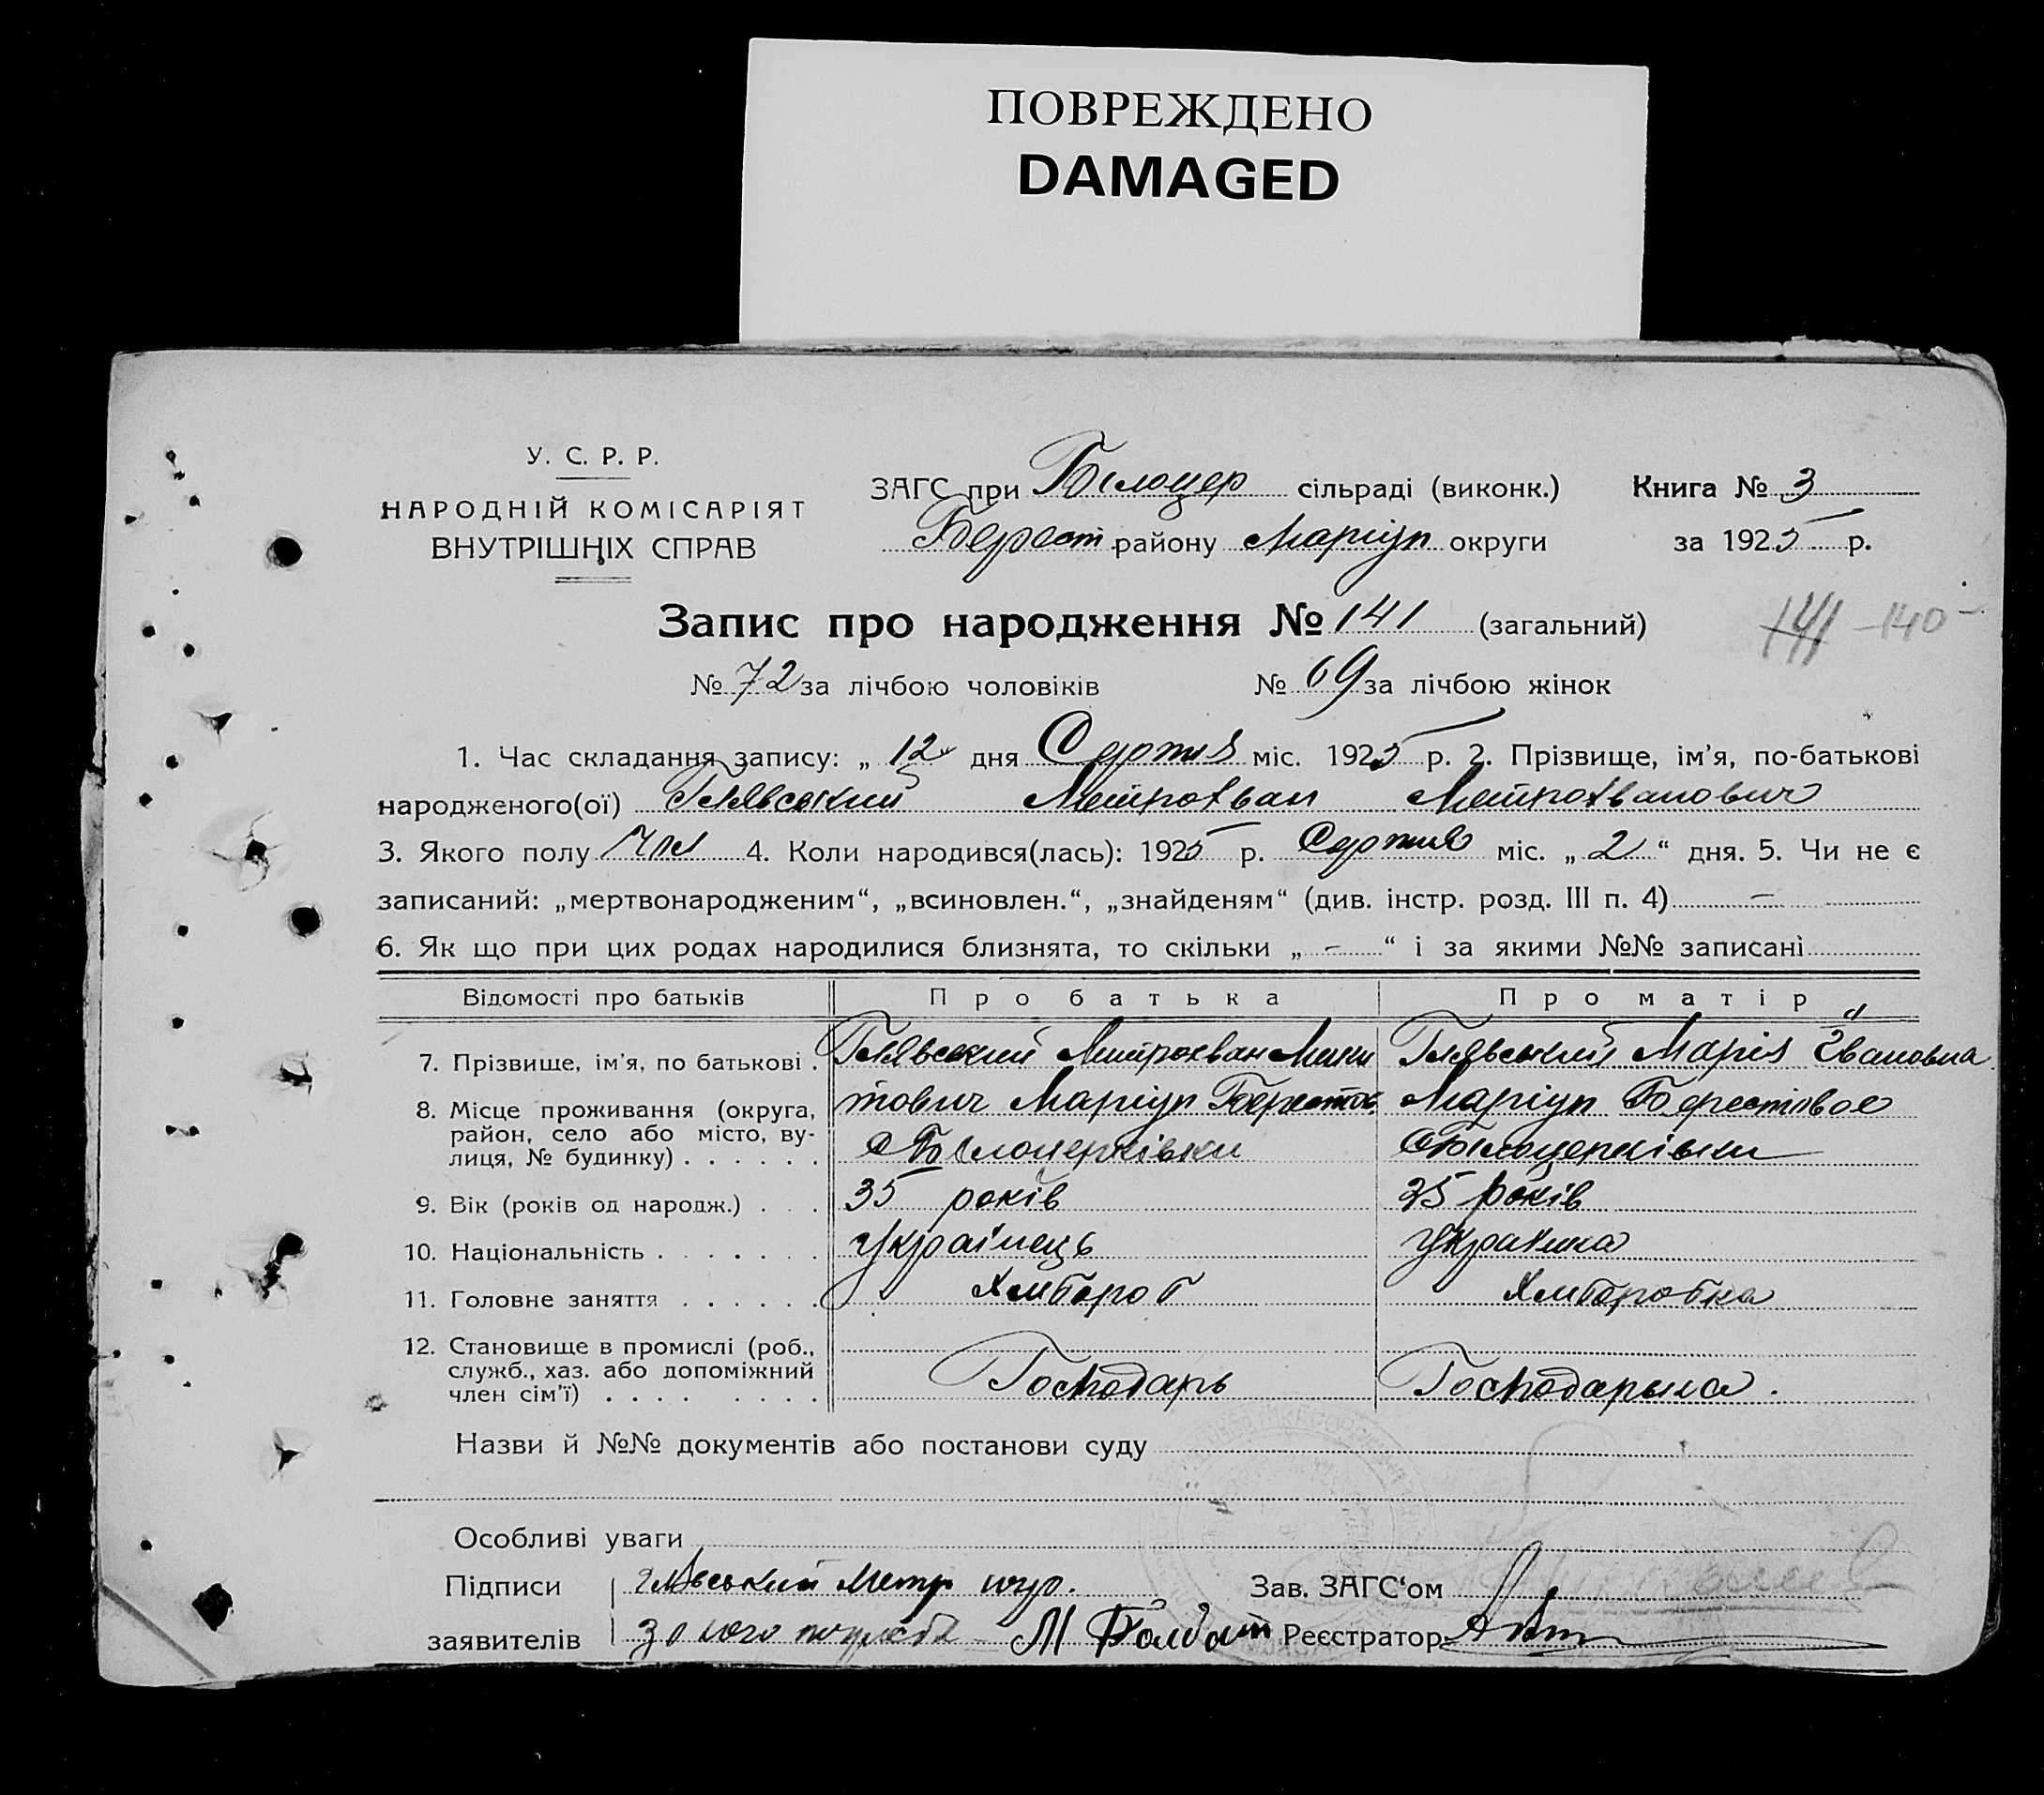 ПОВРЕЖДЕНО
DAMAGED
У. С. Р. Р.
НАРОДНІЙ КОМІСАРІЯТ
ВНУТРІШНІХ СПРАВ
ЗАГС при Білоцер сільраді (виконк.) Книга № 3
Берест району Маріуп округи за 1925 р.
Запис про народження № 141 (загальний) 141 - 140 -
№ 72 за лічбою чоловіків № 69 за лічбою жінок
1. Час складання запису: „ 12 дня Серпня міс. 1925 р. 2. Прізвище, ім'я, по-батькові
народженого(ої)
3. Якого полу Чол 4. Коли народився(лась): 1925 р. Серпня міс. „ 2 “ дня. 5. Чи не є
записаний: „мертвонародженим“, „всиновлен.“, „знайденям“ (див. інстр. розд. III п. 4) —
6. Як що при цих родах народилися близнята, то скільки „ - “ і за якими №№ записані
Відомості про батьків Про батька Про матір
7. Прізвище, ім'я, по батькові . Марія Івановна
8. Місце проживання (округа, Маріуп Берестов Маріуп Берестовое
район, село або місто, ву- с Білоцерківки с Білоцерківки
лиця, № будинку) . . . . . .
9. Вік (років од народж.) . . . 35 років 25 років
10. Національність . . . . . . . Українець Українка
11. Головне заняття . . . . . . Хлібороб Хліборобка
12. Становище в промислі (роб.,
служб., хаз. або допоміжний Господарь Господарька.
член сім'ї) . . . . . . . .
Назви й №№ документів або постанови суду
Особливі уваги
Підписи Зав. ЗАГС‘ом
заявителів М Реєстратор